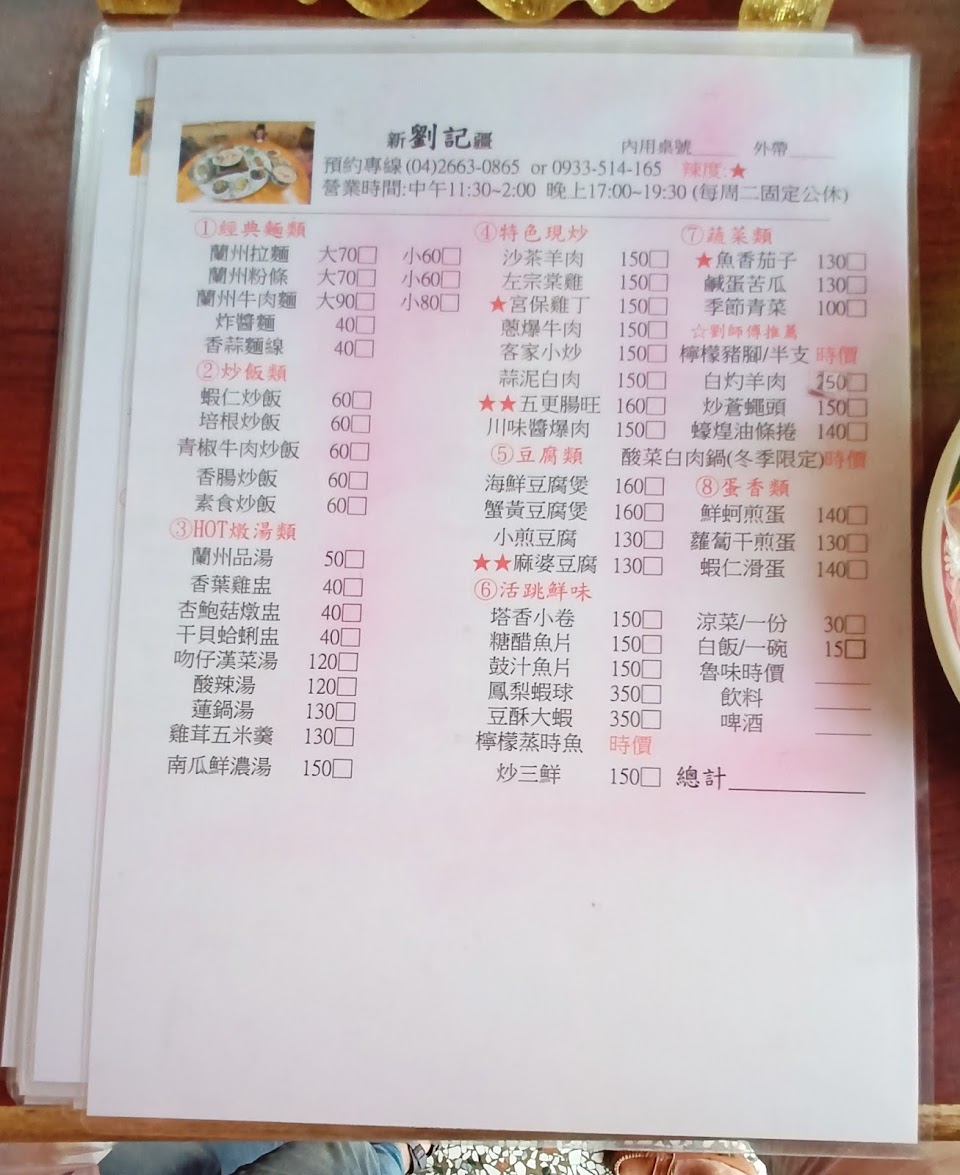 新劉記疆
內用桌號 外帶
預約專線(04)2663-0865 or 0933-514-165 辣度:★
營業時間:中午11:30~2:00 晚上17:00~19:30 (每周二固定公休)
①經典麵類
蘭州拉麵 大70□ 小60□
蘭州粉條 大70□ 小60□
蘭州牛肉麵 大90□ 小80□
炸醬麵 40□
香蒜麵線 40□
②炒飯類
蝦仁炒飯 60□
培根炒飯 60□
青椒牛肉炒飯 60□
香腸炒飯 60□
素食炒飯 60□
③HOT燉湯類
蘭州品湯 50□
香葉雞盅 40□
杏鮑菇燉盅 40□
干貝蛤蜊盅 40□
吻仔漢菜湯 120□
酸辣湯 120□
蓮鍋湯 130□
雞茸五米羹 130□
南瓜鮮濃湯 150□
④特色現炒
沙茶羊肉 150□
左宗棠雞 150□
★宮保雞丁 150□
蔥爆牛肉 150□
客家小炒 150□
蒜泥白肉 150□
★★五更腸旺 160□
川味醬爆肉 150□
⑤豆腐類
海鮮豆腐煲 160□
蟹黃豆腐煲 160□
小煎豆腐 130□
★★麻婆豆腐 130□
⑥活跳鮮味
塔香小卷 150□
糖醋魚片 150□
鼓汁魚片 150□
鳳梨蝦球 350□
豆酥大蝦 350□
檸檬蒸時魚 時價
炒三鮮 150□
⑦蔬菜類
★魚香茄子 130□
鹹蛋苦瓜 130□
季節青菜 100□
☆劉師傅推薦
檸檬豬腳/半支 時價
白灼羊肉 250□
炒蒼蠅頭 150□
蠔煌油條捲 140□
酸菜白肉鍋(冬季限定)時價
⑧蛋香類
鮮蚵煎蛋 140□
蘿蔔干煎蛋 130□
蝦仁滑蛋 140□
涼菜/一份 30□
白飯/一碗 15□
魯味時價
飲料
啤酒
總計